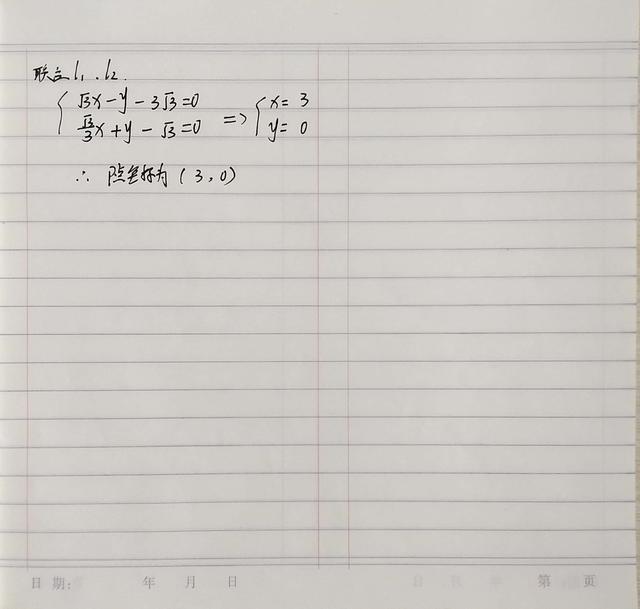 联立l₁.l₂.
{ √3x-y-3√3=0 => { x=3
√3/3x+y-√3=0 y=0
∴ P点坐标为(3,0)
日 期: 年 月 日 第 页